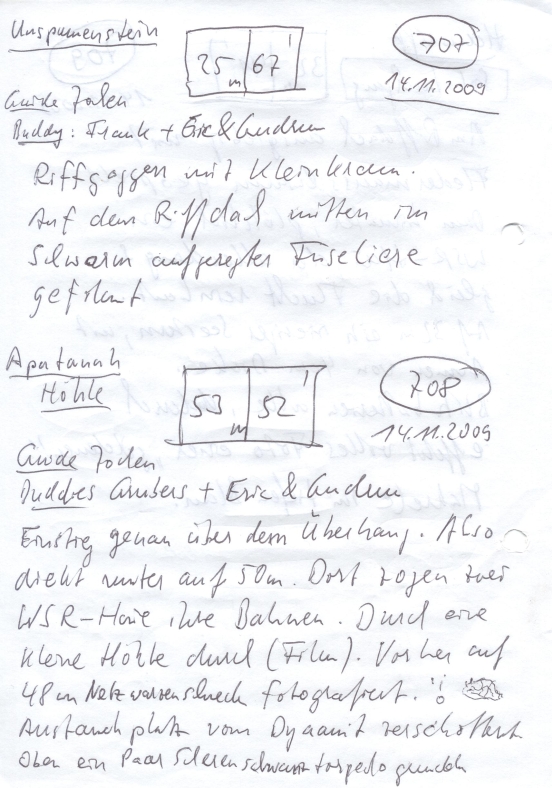 25 m 67'
707
14.11.2009
Guide Joden
Buddy: Frank + Eric & Gudrun
Riffgaggen mit Kleinkram.
Auf dem Riffdach mitten im
Schwarm aufgeregter Füseliere
gefilmt
Apatanah
Höhle
53 m 52'
708
14.11.2009
Guide Joden
Buddies + Eric & Gudrun
Einstieg genau über dem Überhang. Also
direkt runter auf 50m. Dort zogen zwei
WSR-Haie ihre Bahnen. Durch eine
kleine Höhle durch (Film). Vorher auf
48m Netzwarzenschneck fotografiert. !
Austauchplatz vom Dynamit verschottert
Oben ein Paar Scherenschwanztorpedo